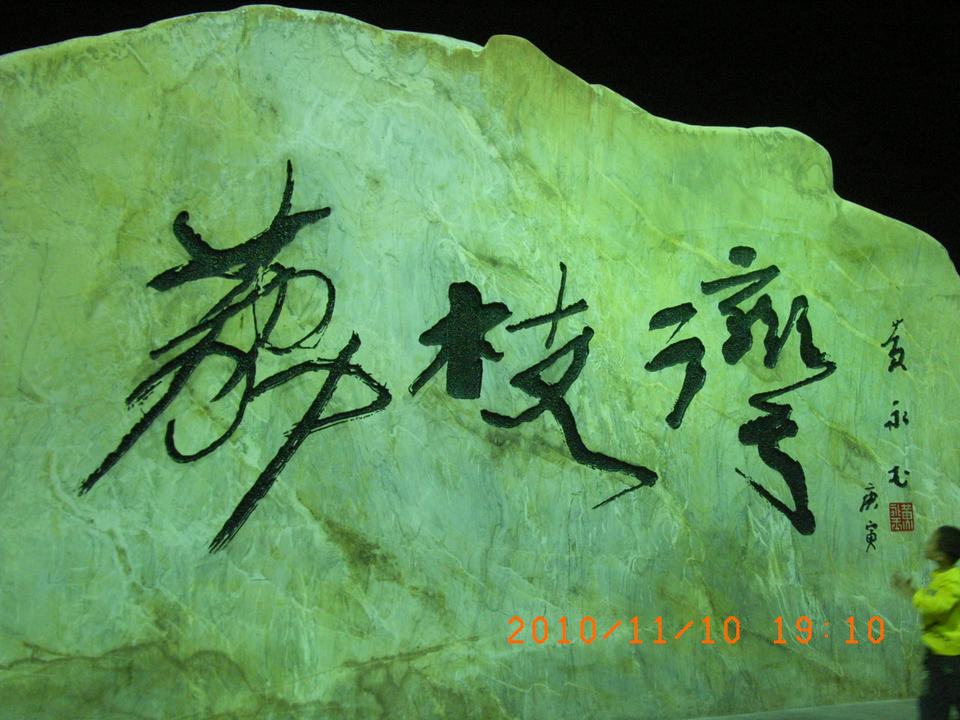 荔枝灣
黄永玉
庚寅
2010/11/10 19:10